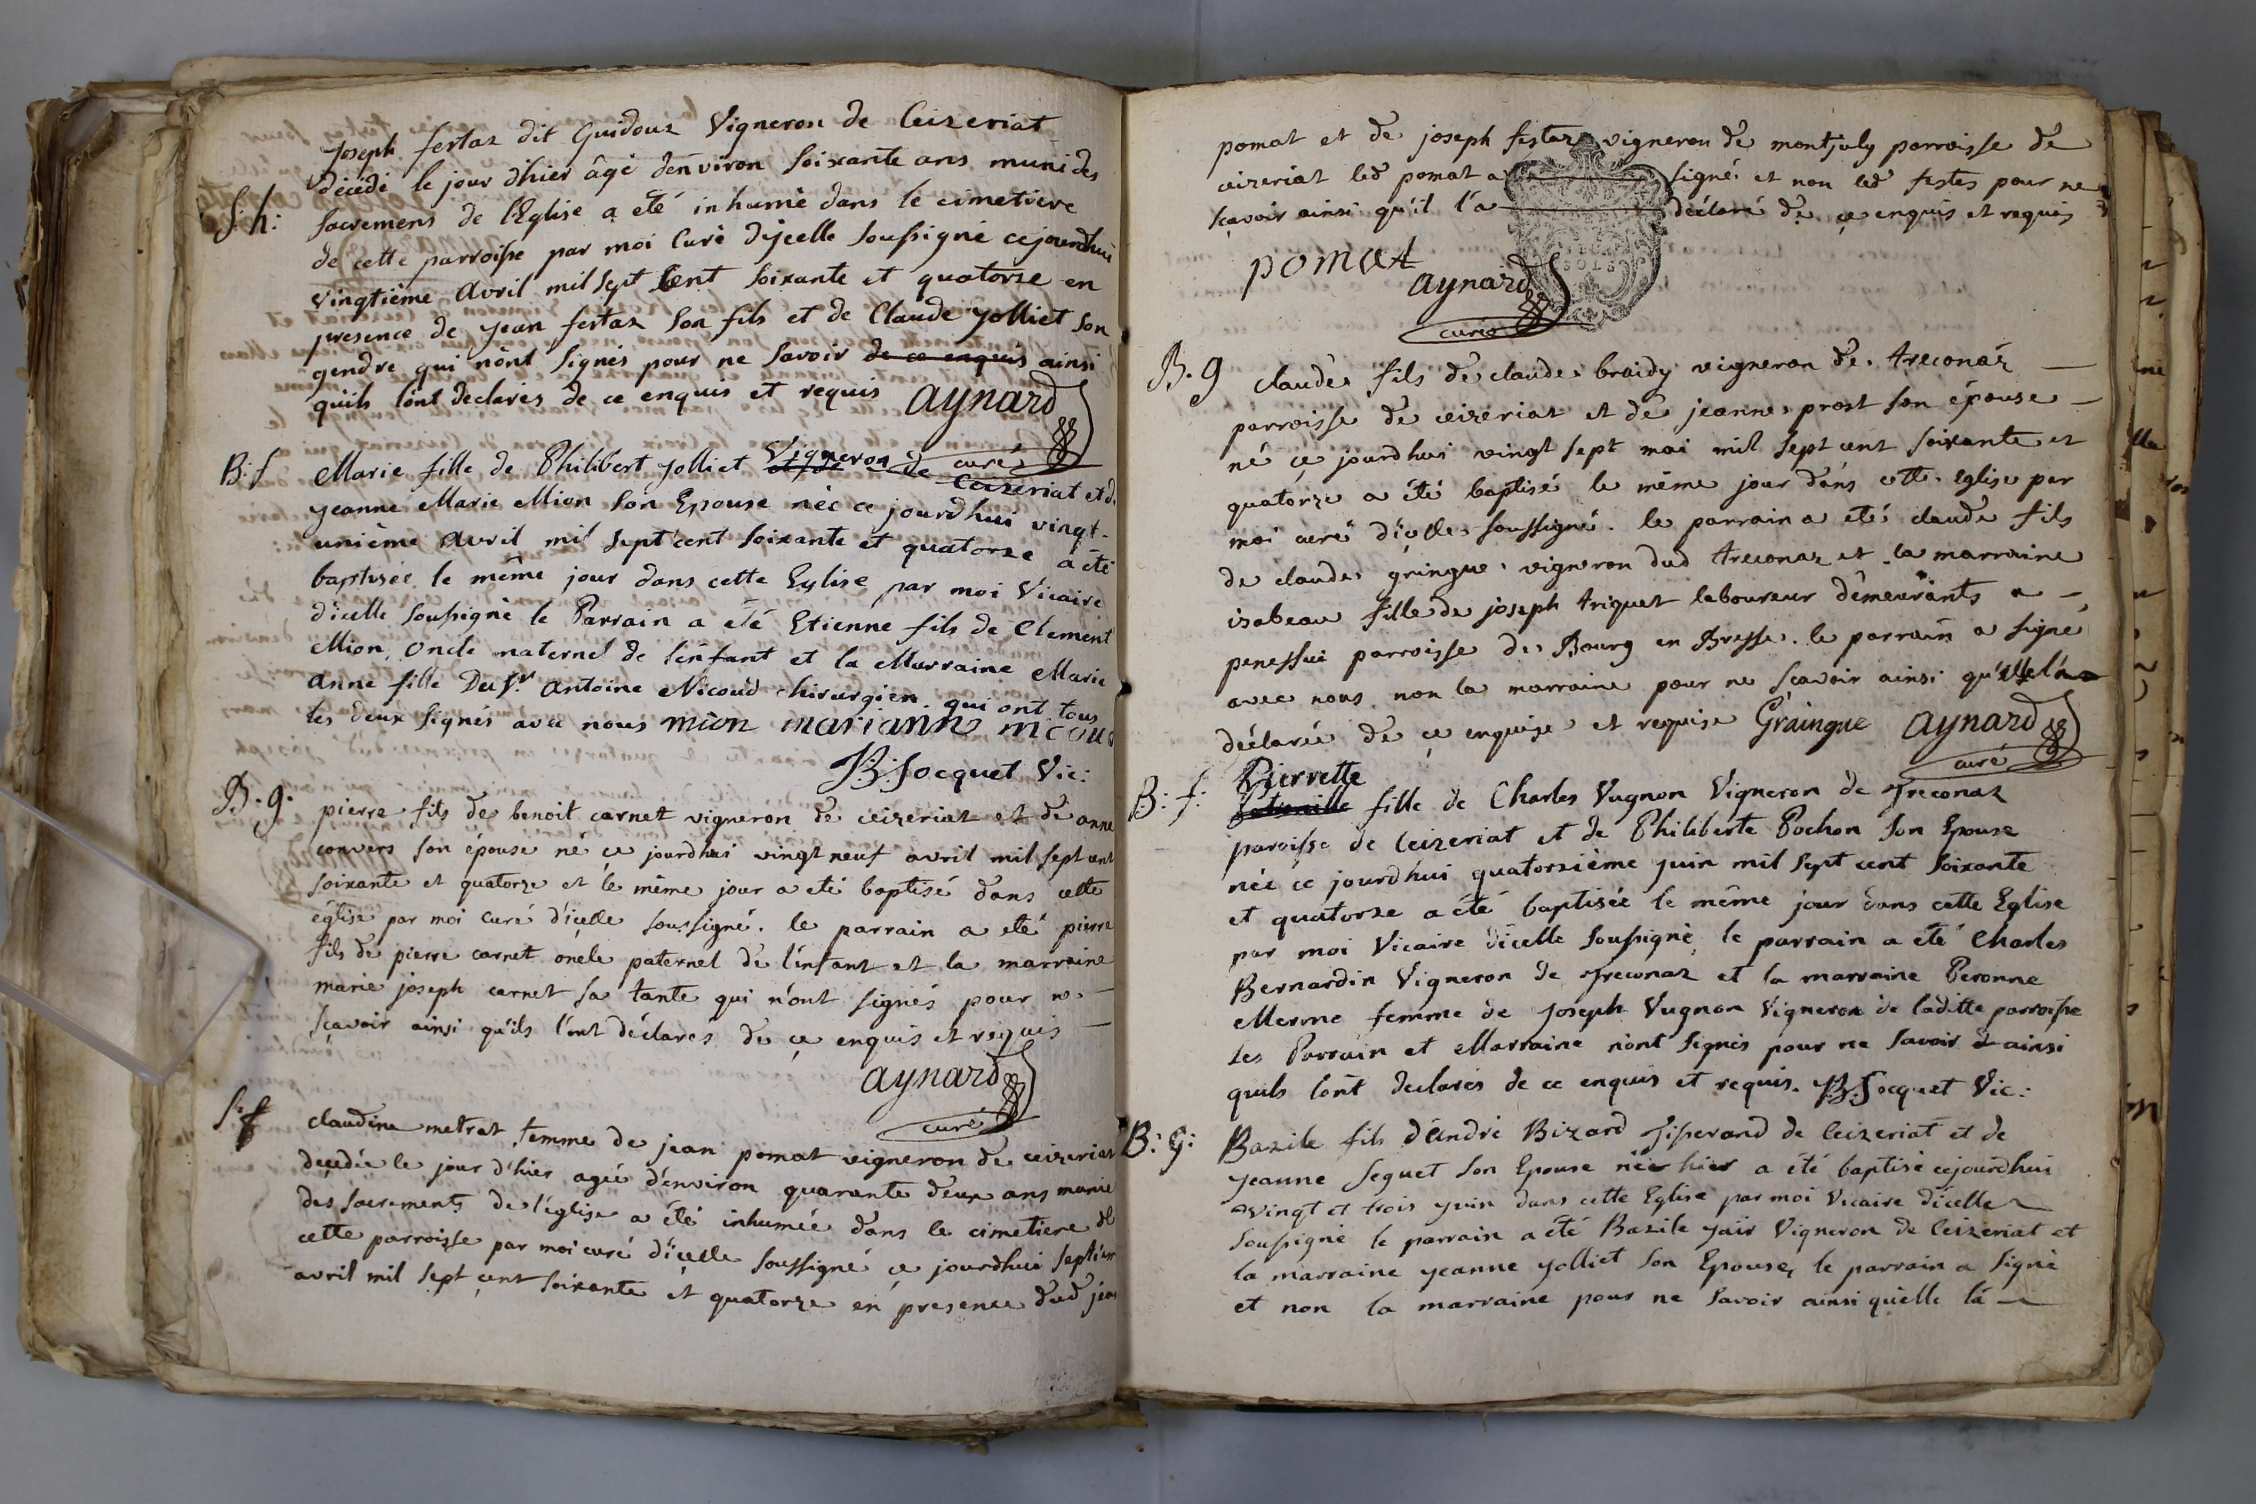 Joseph fertaz dit Guidouz Vigneron de Ceizeriat
S: h: décédé le jour dhier âgé denviron soixante ans muni des
sacremens de lEglise a eté inhumé dans le cimetiere
de cette parroisse par moi Curé dyjcelle soussigné cejourdhui
vingtième avril mil sept cent soixante et quatorze en
presence de jean fertaz son fils et de Claude jolliet son
gendre qui nont signés pour ne savoir de ce enquis ainsi
quils lont declarés de ce enquis et requis aynard
curé
B: f Marie fille de Philibert jolliet Vigneron de Ceizeriat et de
jeanne Marie Mion son Epouse née ce jourdhui vingt-
unième avril mil sept cent soixante et quatorze a été
baptisée le même jour dans cette Eglise par moi Vicaire
dicelle soussigné le Parrain a été Etienne fils de Clement
Mion, Oncle maternel de lenfant et la Marraine Marie
anne fille Du Sr antoine Nicoud chirurgien qui ont tous
les deux signés avec nous mion marianne nicoud
B: Jocquet Vic:
B. g. pierre fils de benoit carnet vigneron de ceizeriat et de anne
convers son épouse né ce jourdhui vingt neuf avril mil sept cent
soixante et quatorze et le même jour a eté baptisé dans cette
église par moi curé d'icelle soussigné. le parrain a eté pierre
fils de pierre carnet oncle paternel de l'enfant et la marraine
marie joseph carnet sa tante qui n'ont signés pour ne
sçavoir ainsi qu'ils l'ont déclarés de ce enquis et requis
aynard
curé
S: f claudine metrat femme de jean pomat vigneron de ceizeriat
decedée le jour d'hier agée d'environ quarante deux ans munie
des sacrements de l'église a été inhumée dans le cimetiere de
cette parroisse par moi curé d'icelle soussigné ce jourdhui septiem
avril mil sept cent soixante et quatorze en presence dud jean
pomat et de joseph festaz vigneron de montjuly parroisse de
ceizeriat led pomat a signé et non led festes pour ne
sçavoir ainsi qu'il l'a déclaré de ce enquis et requis
pomat
aynard
curé
B. g claude fils de claude braidy vigneron de treconaz
parroisse de ceizeriat et de jeanne prost son épouse
né ce jourdhui vingt sept mai mil sept cent soixante et
quatorze a été baptisé le même jour dans cette eglise par
moi curé d'icelle soussigné. le parrain a eté claude fils
de claude gringue vigneron dud treconaz et la marraine
isabeau fille de joseph triquet laboureur demeurants a
penessui parroisse de Bourg en Bresse. le parrain a signé
avec nous non la marraine pour ne sçavoir ainsi qu'elle l'a
déclarée de ce enquise et requise Graingue aynard
curé
Pierrette
B: f: fille de Charles Vugnon Vigneron de Treconaz
paroisse de Ceizeriat et de Philiberte Pochon son Epouse
née ce jourdhui quatorzième juin mil sept cent soixante
et quatorze a été baptisée le même jour dans cette Eglise
par moi Vicaire dicelle soussigné, le parrain a été Charles
Bernardin Vigneron de Treconaz et la marraine Peronne
Merme femme de joseph Vugnon Vigneron de laditte parroisse
Les Parrain et Marraine n'ont signés pour ne savoir ainsi
quils lont declarés de ce enquis et requis. B: Jocquet Vic:
B: g: Bazile fils dandré Bizard Tisserand de Ceizeriat et de
jeanne seguet son Epouse né hier a été baptisé cejourdhui
vingt et trois juin dans cette Eglise par moi Vicaire dicelle
soussigné le parrain a été Bazile jair Vigneron de Ceizeriat et
la marraine jeanne jolliet son Epouse, le parrain a signé
et non la marraine pour ne savoir ainsi quelle la